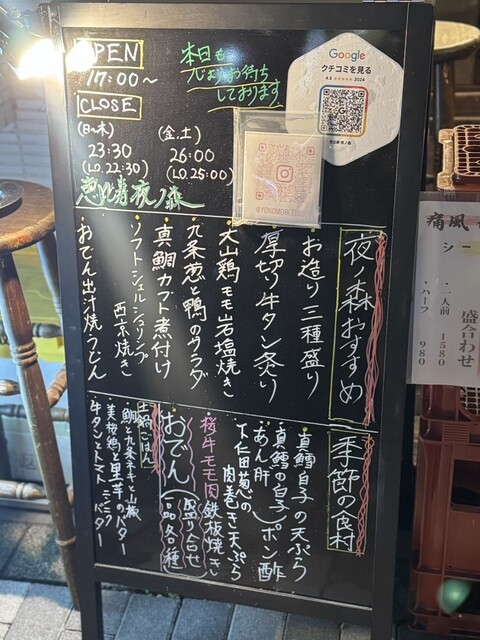 OPEN
17:00～
CLOSE
(日～木)
23:30
(L.O.22:30)
(金.土)
26:00
(L.O.25:00)
恵比寿夜ノ森
本日も
心よりお待ち
しております
Google
クチコミを見る
4.8 ★★★★★ 3024
@YORUNOMORI_EBISU
夜ノ森おすすめ
・お造り三種盛り
・厚切り牛タン炙り
・大山鶏モモ岩塩焼き
・九条葱と鴨のサラダ
・真鯛カブト煮付け
・ソフトシェルシュリンプ
西京焼き
・おでん出汁焼うどん
季節の食材
・真鱈白子の天ぷら
・真鱈の白子
・あん肝
ポン酢
・下仁田葱の
肉巻き天ぷら
・桜牛モモ肉鉄板焼き
・おでん
盛り合せ
一品各種
土鍋ごはん
・鯛と九条ネギと山椒
・美桜鶏と里芋のバター
・牛タンとトマト ニンニクバター
痛風
シー
盛合わせ
・一人前 1580
・ハーフ 980